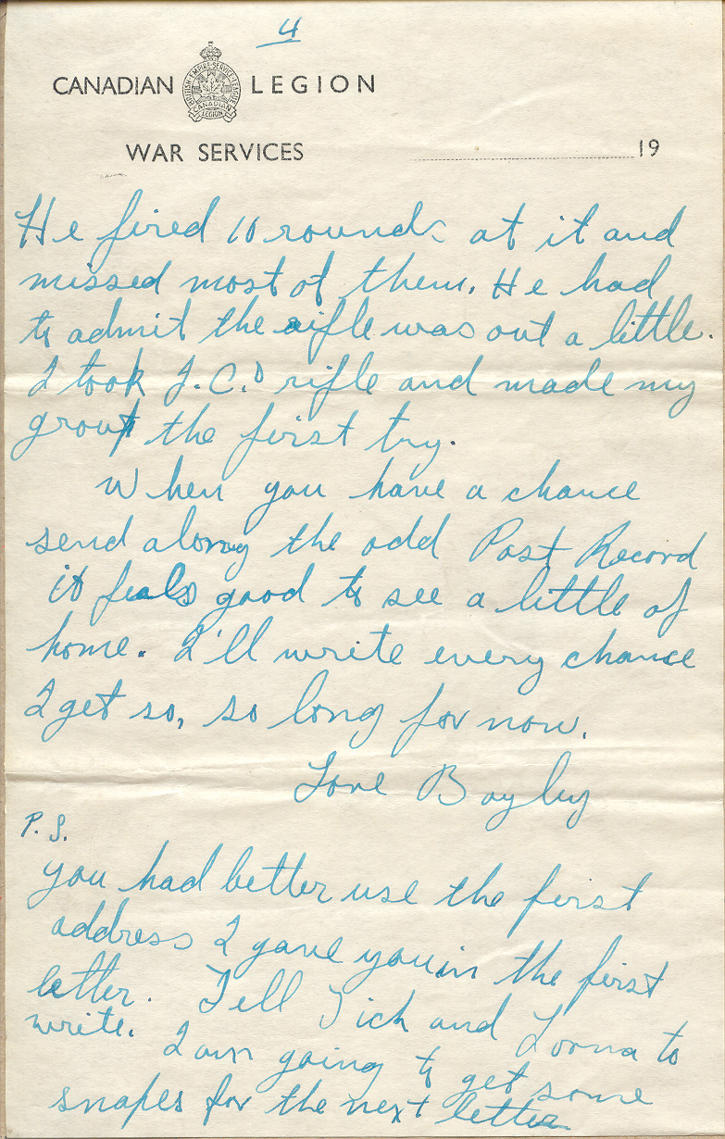 4
CANADIAN LEGION
BRITISH EMPIRE SERVICE LEAGUE
CANADIAN
LEGION
WAR SERVICES 19
He fired 10 rounds at it and
missed most of them. He had
to admit the rifle was out a little.
I took J.C.s rifle and made my
group the first try.
When you have a chance
send along the odd Post Record
it feals good to see a little of
home. I'll write every chance
I get so, so long for now.
Love Bayley
P.S.
you had better use the first
address I gave you in the first
letter. Tell Dich and Lorna to
write. I am going to get some
snapes for the next letter